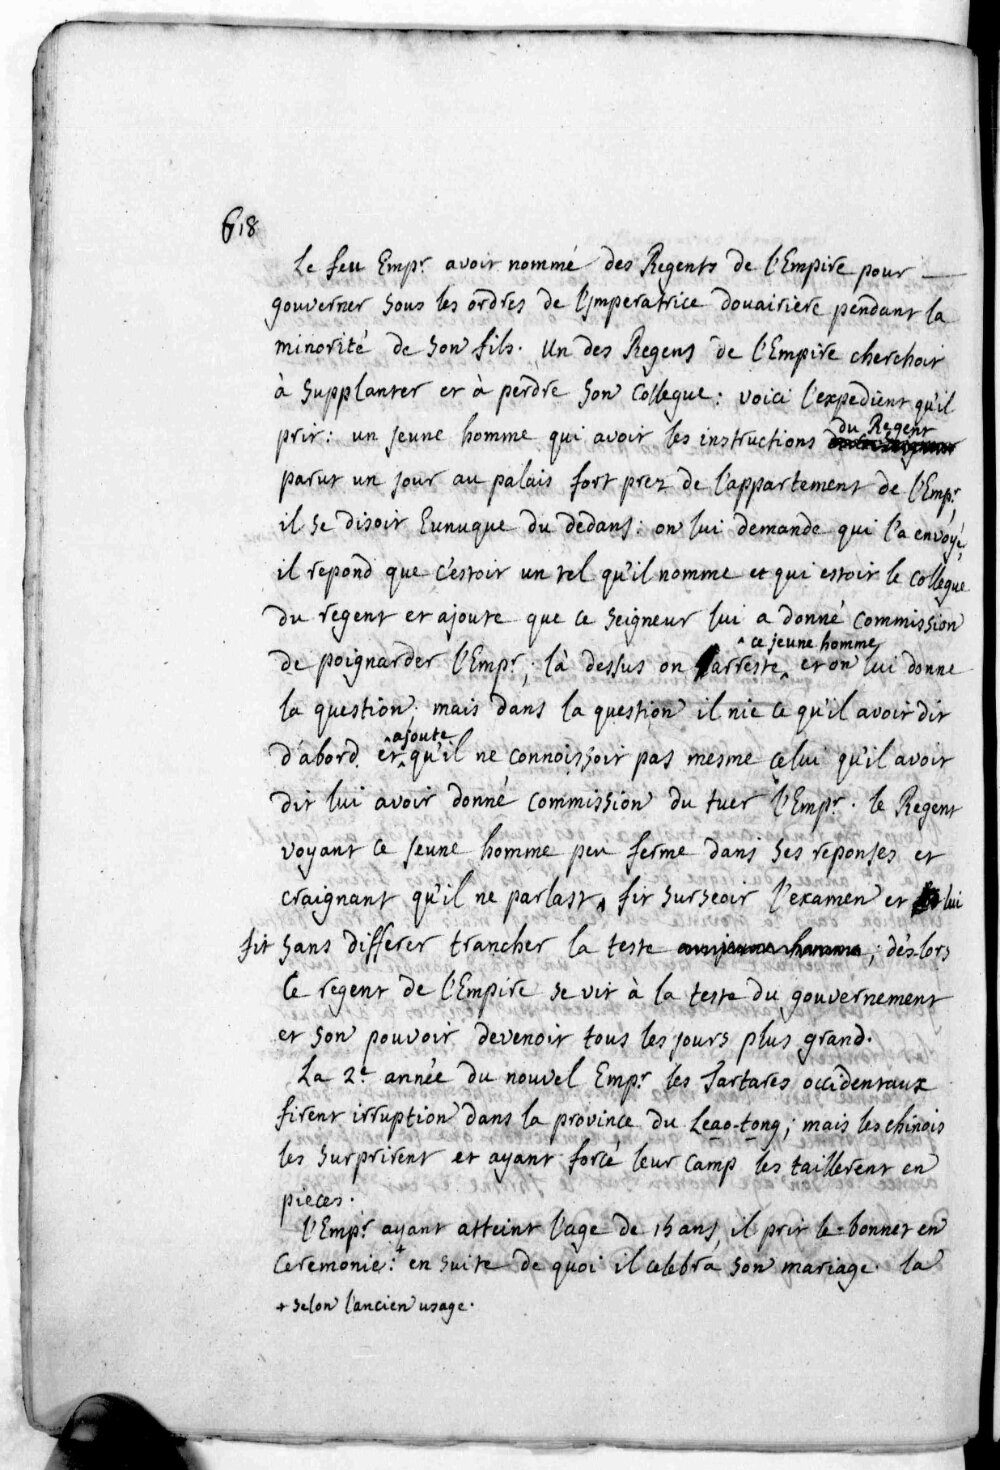 618
Le feu Empr avoit nommé des Regents de l'Empire pour
gouverner sous les ordres de l'Imperatrice douairiere pendant la
minorité de son fils. Un des Regens de l'Empire cherchoit
à supplanter et à perdre son collegue: voici l'expedient qu'il
prit: un jeune homme qui avoit les instructions du Regent
parut un jour au palais fort prez de l'appartement de l'Empr,
il se disoit Eunuque du dedans: on lui demande qui l'a envoyé,
il repond que c'estoit un tel qu'il nomme et qui estoit le collegue
du regent et ajoute que ce seigneur lui a donné commission
de poignarder l'Empr; là dessus on arreste ce jeune homme, et on lui donne
la question; mais dans la question il nie ce qu'il avoit dit
d'abord. et ajoute qu'il ne connoissoit pas mesme celui qu'il avoit
dit lui avoir donné commission du tuer l'Empr. le Regent
voyant ce jeune homme peu ferme dans ses reponses et
craignant qu'il ne parlast, fit surseoir l'examen et lui
fit sans differer trancher la teste; dés-lors
ce regent de l'Empire se vit à la teste du gouvernement
et son pouvoir devenoit tous les jours plus grand.
La 2e année du nouvel Empr les Tartares occidentaux
firent irruption dans la province du Leao-tong; mais les chinois
les surprirent et ayant forcé leur camp les taillerent en
pieces.
l'Empr ayant atteint l'age de 15 ans, il prit le bonnet en
Ceremonie:+ en suite de quoi il celebra son mariage. la
+ selon l'ancien usage.